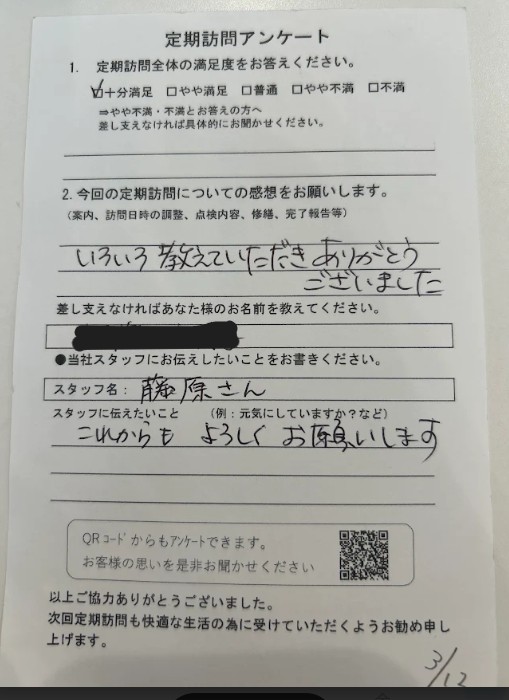 定期訪問アンケート
1. 定期訪問全体の満足度をお答えください。
☑十分満足 □やや満足 □普通 □やや不満 □不満
⇒やや不満・不満とお答えの方へ
差し支えなければ具体的にお聞かせください。
2. 今回の定期訪問についての感想をお願いします。
（案内、訪問日時の調整、点検内容、修繕、完了報告等）
いろいろ教えていただきありがとう
ございました
差し支えなければあなた様のお名前を教えてください。
●当社スタッフにお伝えしたいことをお書きください。
スタッフ名：藤原さん
スタッフに伝えたいこと （例：元気にしていますか？など）
これからも よろしく お願いします
QRコードからもアンケートできます。
お客様の思いを是非お聞かせください
以上ご協力ありがとうございました。
次回定期訪問も快適な生活の為に受けていただくようお勧め申し
上げます。
3/12